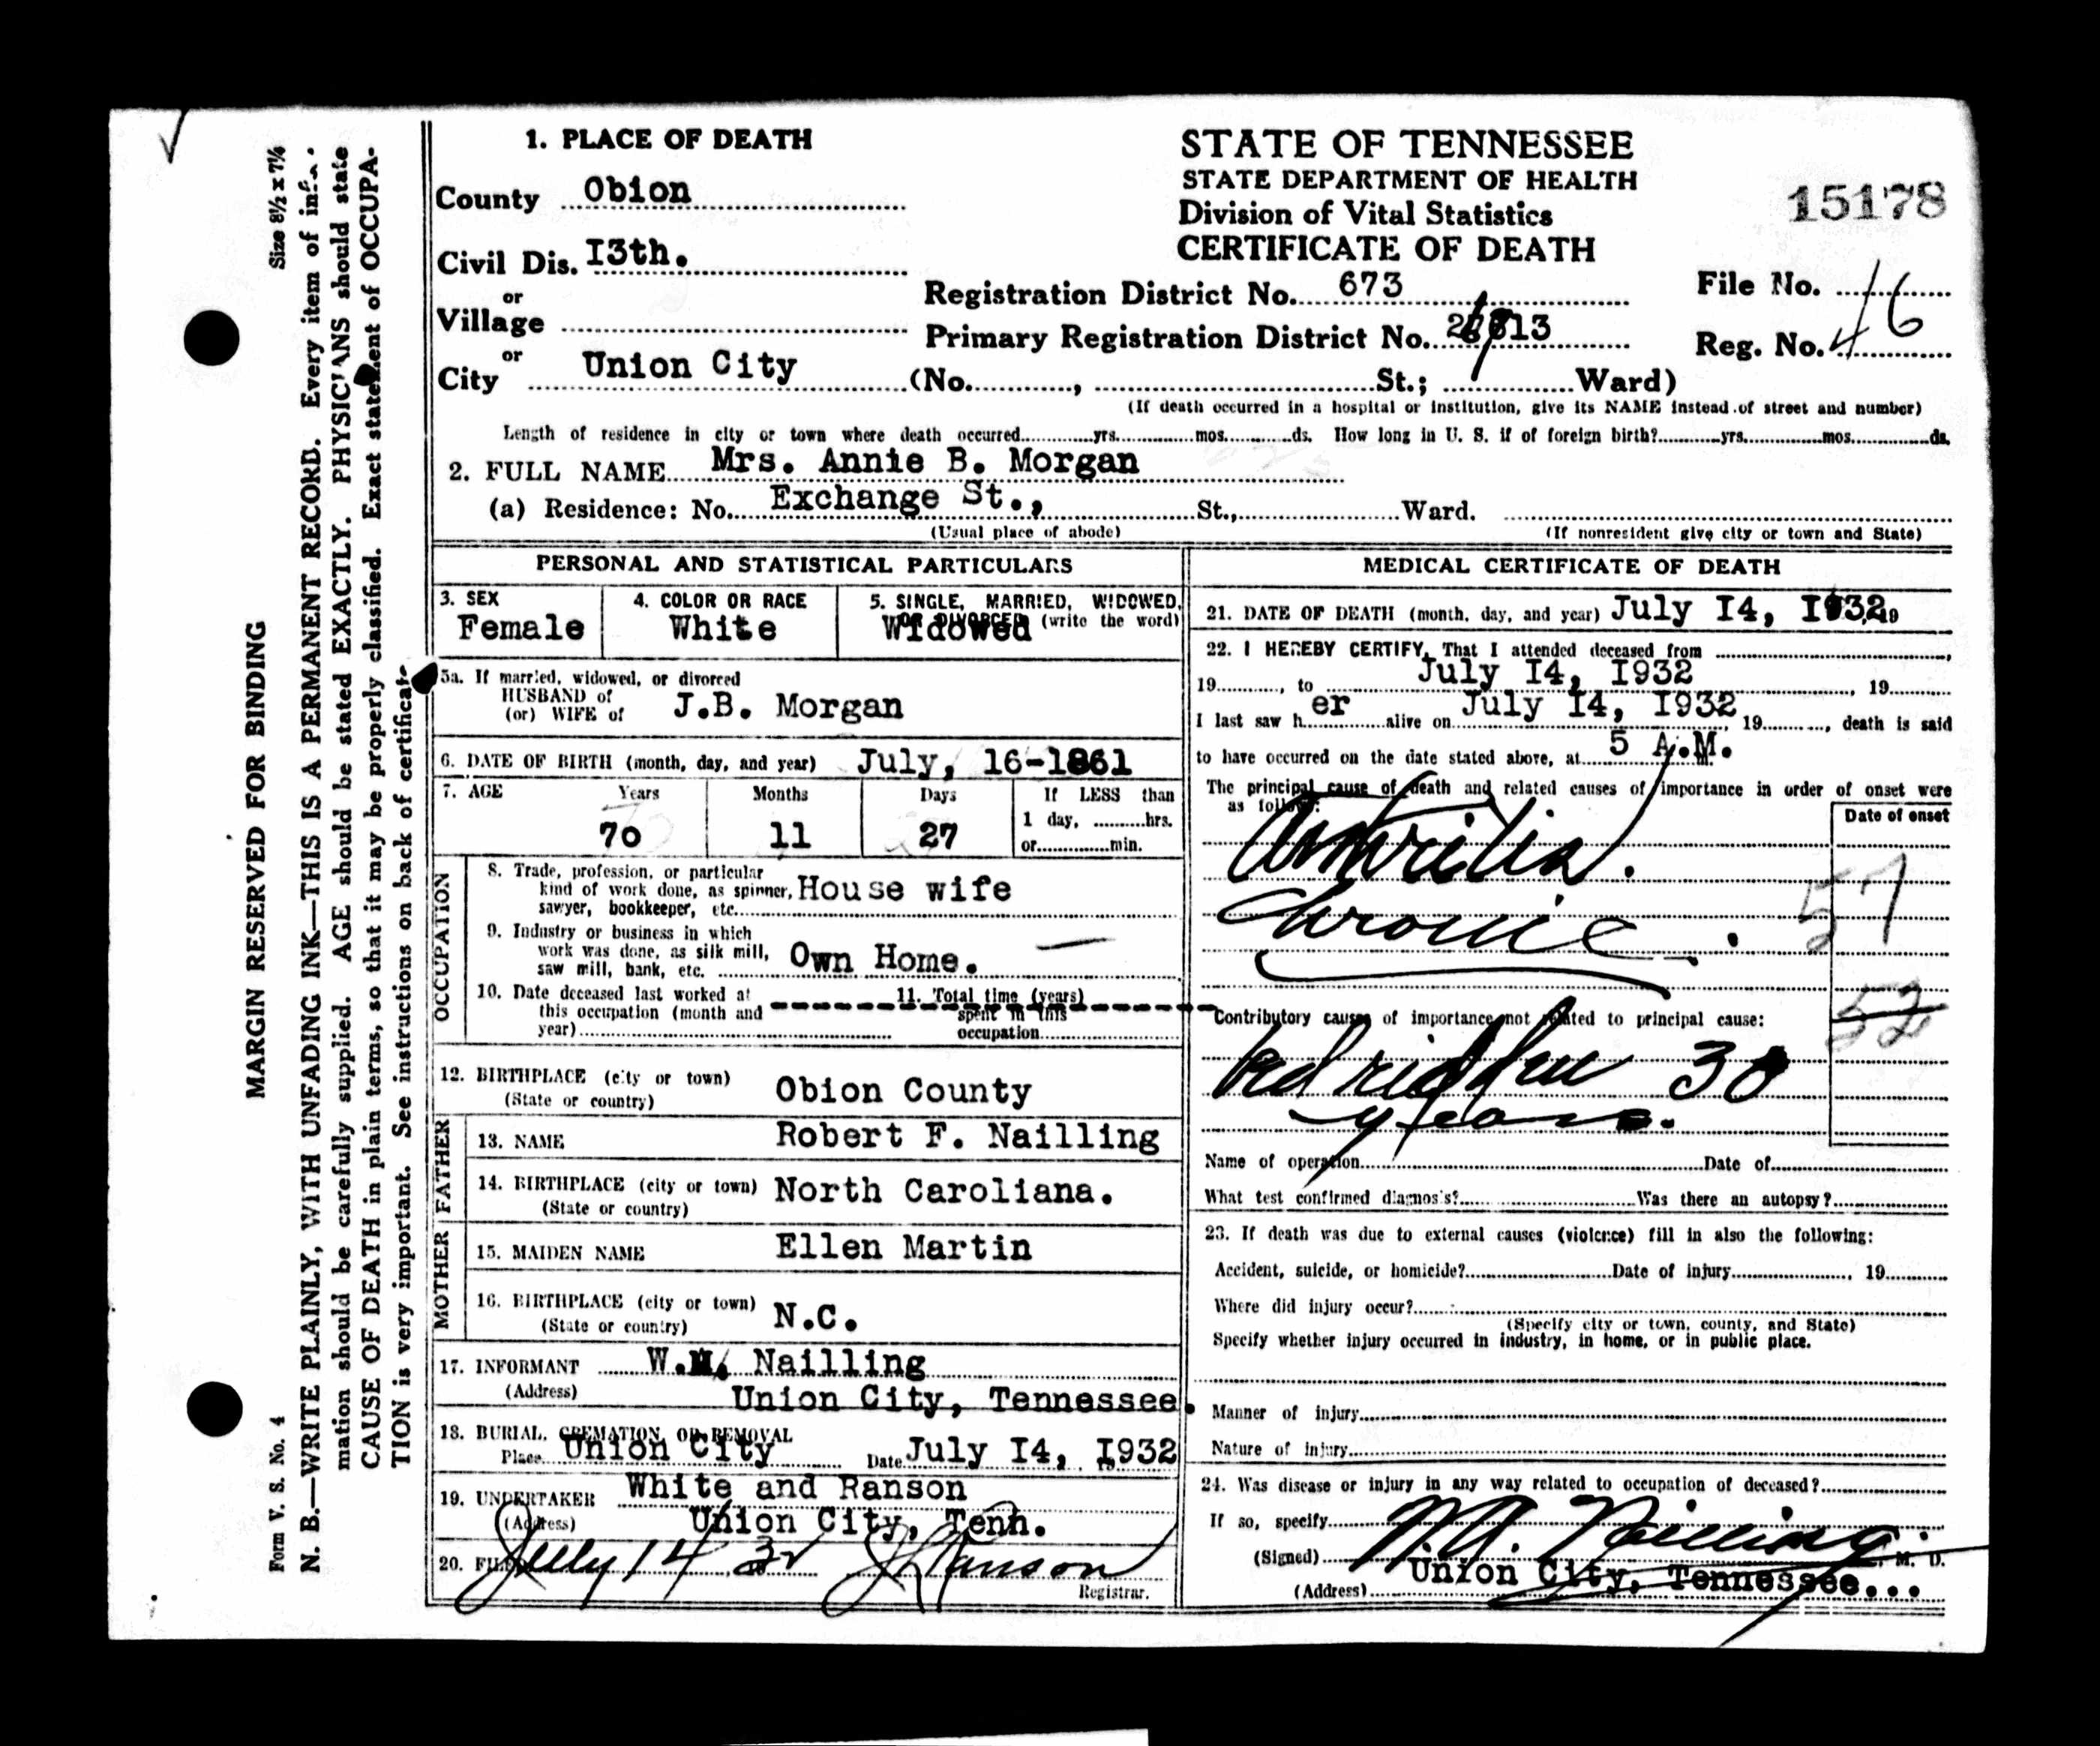 1. PLACE OF DEATH
County Obion
Civil Dis. I3th.
or
Village
or
City Union City (No. , St.; Ward)
STATE OF TENNESSEE
STATE DEPARTMENT OF HEALTH
Division of Vital Statistics
CERTIFICATE OF DEATH
15178
Registration District No. 673
Primary Registration District No.
File No.
Reg. No. 46
(If death occurred in a hospital or institution, give its NAME instead of street and number)
Length of residence in city or town where death occurred yrs. mos. ds. How long in U. S. if of foreign birth? yrs. mos. ds.
2. FULL NAME Mrs. Annie B. Morgan
(a) Residence: No. Exchange St., St., Ward.
(Usual place of abode) (If nonresident give city or town and State)
PERSONAL AND STATISTICAL PARTICULARS
3. SEX
Female
4. COLOR OR RACE
White
5. SINGLE, MARRIED, WIDOWED,
OR DIVORCED (write the word)
Widowed
5a. If married, widowed, or divorced
HUSBAND of
(or) WIFE of J.B. Morgan
6. DATE OF BIRTH (month, day, and year) July, 16-1861
7. AGE Years Months Days If LESS than
1 day, hrs.
70 11 27 or min.
OCCUPATION
8. Trade, profession, or particular
kind of work done, as spinner, House wife
sawyer, bookkeeper, etc.
9. Industry or business in which
work was done, as silk mill, Own Home.
saw mill, bank, etc.
10. Date deceased last worked at
this occupation (month and
year)
11. Total time (years)
spent in this
occupation
12. BIRTHPLACE (city or town) Obion County
(State or country)
FATHER
13. NAME Robert F. Nailling
14. BIRTHPLACE (city or town) North Caroliana.
(State or country)
MOTHER
15. MAIDEN NAME Ellen Martin
16. BIRTHPLACE (city or town) N.C.
(State or country)
17. INFORMANT W.M. Nailling
(Address) Union City, Tennessee.
18. BURIAL, CREMATION, OR REMOVAL
Place Union City Date July I4, I932
19. UNDERTAKER White and Ranson
(Address) Union City, Tenn.
20. FILED July 14 32 Ranson
Registrar.
MEDICAL CERTIFICATE OF DEATH
21. DATE OF DEATH (month, day, and year) July I4, I932 19
22. I HEREBY CERTIFY, That I attended deceased from
19 , to July I4, I932 , 19
I last saw her alive on July I4, I932 19 , death is said
to have occurred on the date stated above, at 5 A.M.
The principal cause of death and related causes of importance in order of onset were
as follows:
Date of onset
Chronic.
57
52
Contributory causes of importance not related to principal cause:
Bed ridden 30
years.
Name of operation Date of
What test confirmed diagnosis? Was there an autopsy?
23. If death was due to external causes (violence) fill in also the following:
Accident, suicide, or homicide? Date of injury , 19
Where did injury occur?
(Specify city or town, county, and State)
Specify whether injury occurred in industry, in home, or in public place.
Manner of injury
Nature of injury
24. Was disease or injury in any way related to occupation of deceased?
If so, specify
(Signed) Nailling M. D.
(Address) Union City, Tennessee...
Size 8½ x 7½
MARGIN RESERVED FOR BINDING
N. B.—WRITE PLAINLY, WITH UNFADING INK—THIS IS A PERMANENT RECORD. Every item of infor-
mation should be carefully supplied. AGE should be stated EXACTLY. PHYSICIANS should state
CAUSE OF DEATH in plain terms, so that it may be properly classified. Exact statement of OCCUPA-
TION is very important. See instructions on back of certificate
Form V. S. No. 4